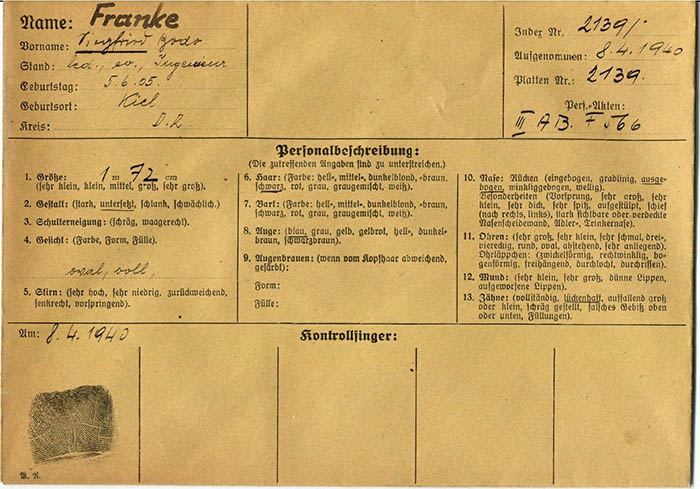 Name: Franke
Vorname: Siegfried Bodo
Stand: led., ev., Ingenieur
Geburtstag: 5.6.05.
Geburtsort: Kiel
Kreis: D.R.
Index Nr. 2139/
Aufgenommen: 8.4.1940
Platten Nr.: 2139.
Pers.-Akten:
III AB. F 566
Personalbeschreibung:
(Die zutreffenden Angaben sind zu unterstreichen.)
1. Größe: 1 m 72 cm
(sehr klein, klein, mittel, groß, sehr groß).
2. Gestalt: (stark, untersetzt, schlank, schwächlich.)
3. Schulterneigung: (schräg, waagerecht).
4. Gesicht: (Farbe, Form, Fülle).
oval, voll,
5. Stirn: (sehr hoch, sehr niedrig, zurückweichend,
senkrecht, vorspringend).
6. Haar: (Farbe: hell-, mittel-, dunkelblond, -braun,
schwarz, rot, grau, graugemischt, weiß).
7. Bart: (Farbe: hell-, mittel-, dunkelblond, -braun,
schwarz, rot, grau, graugemischt, weiß).
8. Auge: (blau, grau, gelb, gelbrot, hell-, dunkel-
braun, schwarzbraun).
9. Augenbrauen: (wenn vom Kopfhaar abweichend,
gefärbt):
Form:
Fülle:
10. Nase: Rücken (eingebogen, gradlinig, ausge-
bogen, winkliggebogen, wellig).
Besonderheiten (Vorsprung, sehr groß, sehr
klein, sehr dick, sehr spitz, aufgestülpt, schief
(nach rechts, links), stark sichtbare oder verdeckte
Nasenscheidewand, Adler-, Trinkernase).
11. Ohren: (sehr groß, sehr klein, sehr schmal, drei-,
viereckig, rund, oval, abstehend, sehr anliegend).
Ohrläppchen: (zwickelförmig, rechtwinklig, bo-
genförmig, freihängend, durchlocht, durchrissen).
12. Mund: (sehr klein, sehr groß, dünne Lippen,
aufgeworfene Lippen).
13. Zähne: (vollständig, lückenhaft, auffallend groß
oder klein, schräg gestellt, falsches Gebiß oben
oder unten, Füllungen).
Am: 8.4.1940
Kontrollfinger: